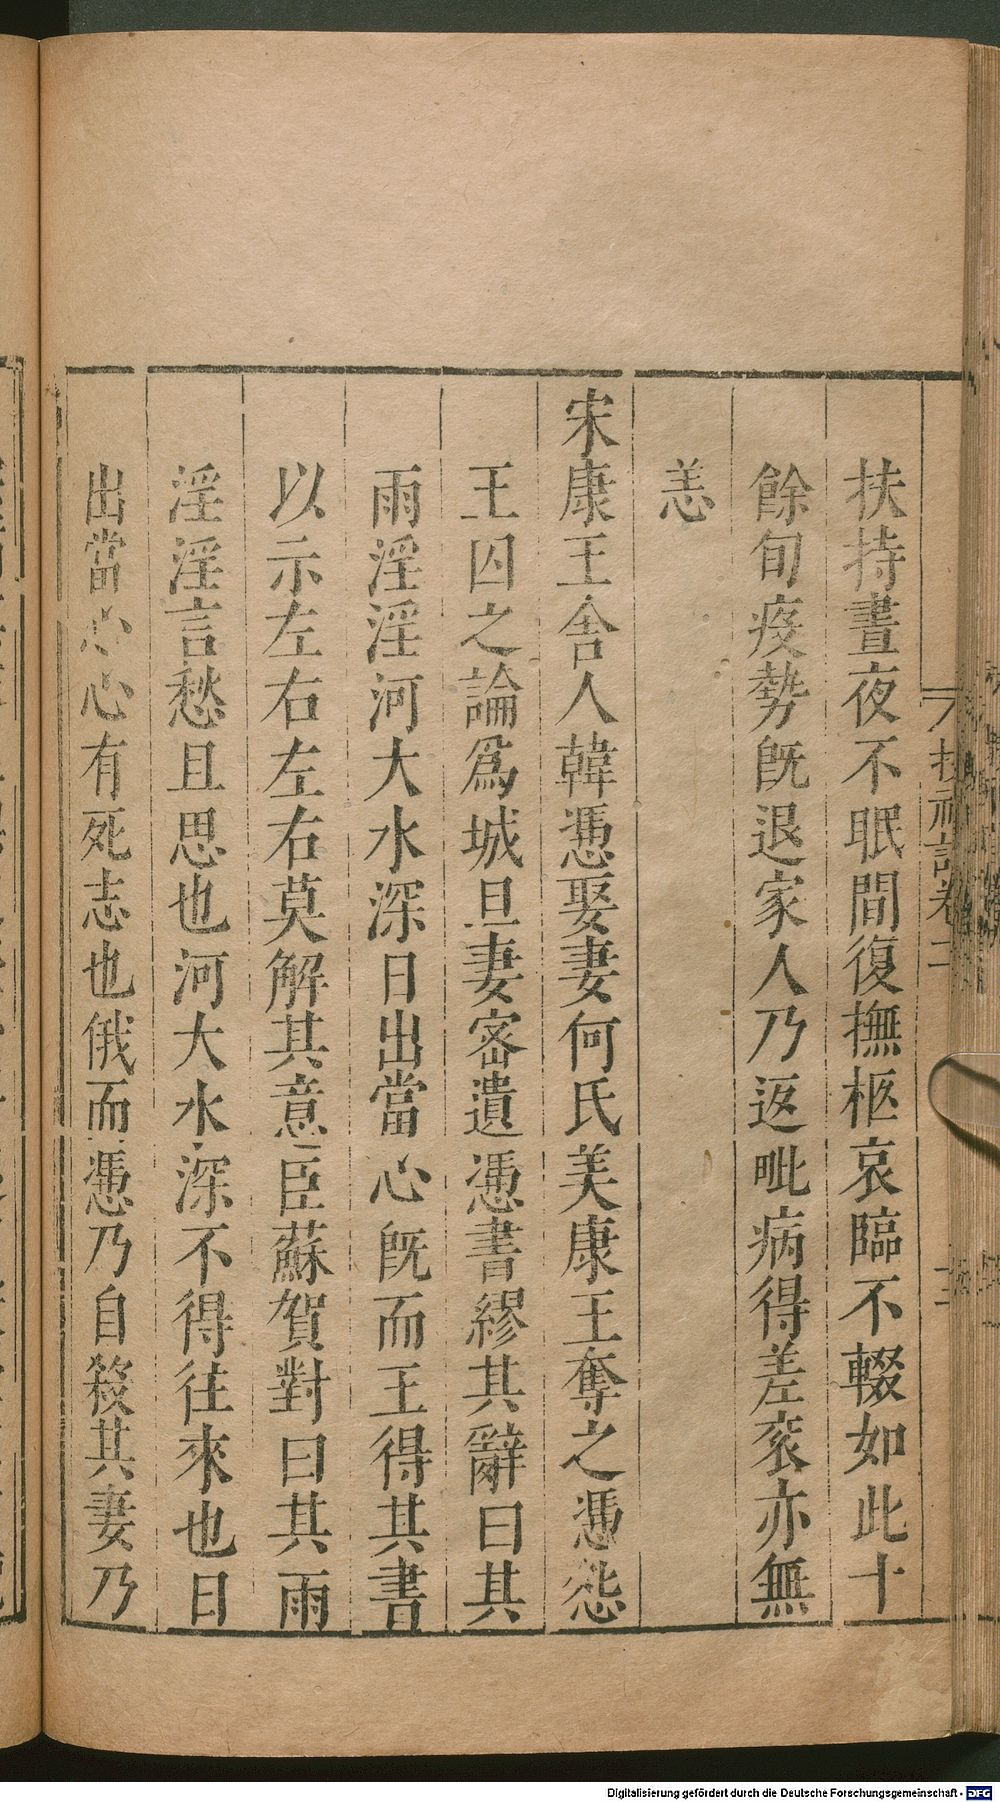 扶持晝夜不眠間復撫柩哀臨不輟如此十
餘旬疫勢旣退家人乃返毗病得差衮亦無
恙
宋康王舍人韓憑娶妻何氏美康王奪之憑怨
王囚之論爲城旦妻密遺憑書繆其辭曰其
雨淫淫河大水深日出當心旣而王得其書
以示左右左右莫解其意臣蘇賀對曰其雨
淫淫言愁且思也河大水深不得徃來也日
出當心心有死志也俄而憑乃自殺其妻乃
Digitalisierung gefördert durch die Deutsche Forschungsgemeinschaft - DFG